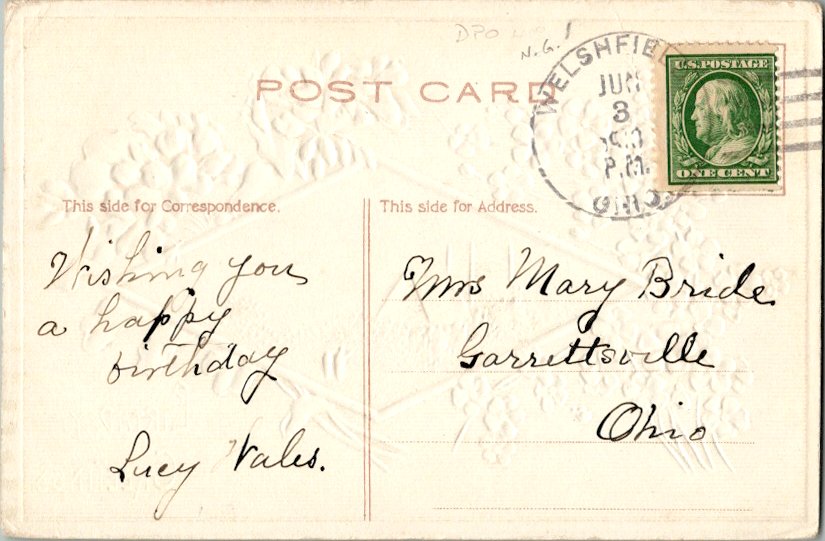 DPO
N.G.!
POST CARD
WELSHFIEL
JUN
3
P.M.
OHIO.
U.S. POSTAGE
ONE CENT
This side for Correspondence.
Wishing you
a happy
birthday
Lucy Wales.
This side for Address.
Mrs Mary Bride
Garrettsville
Ohio